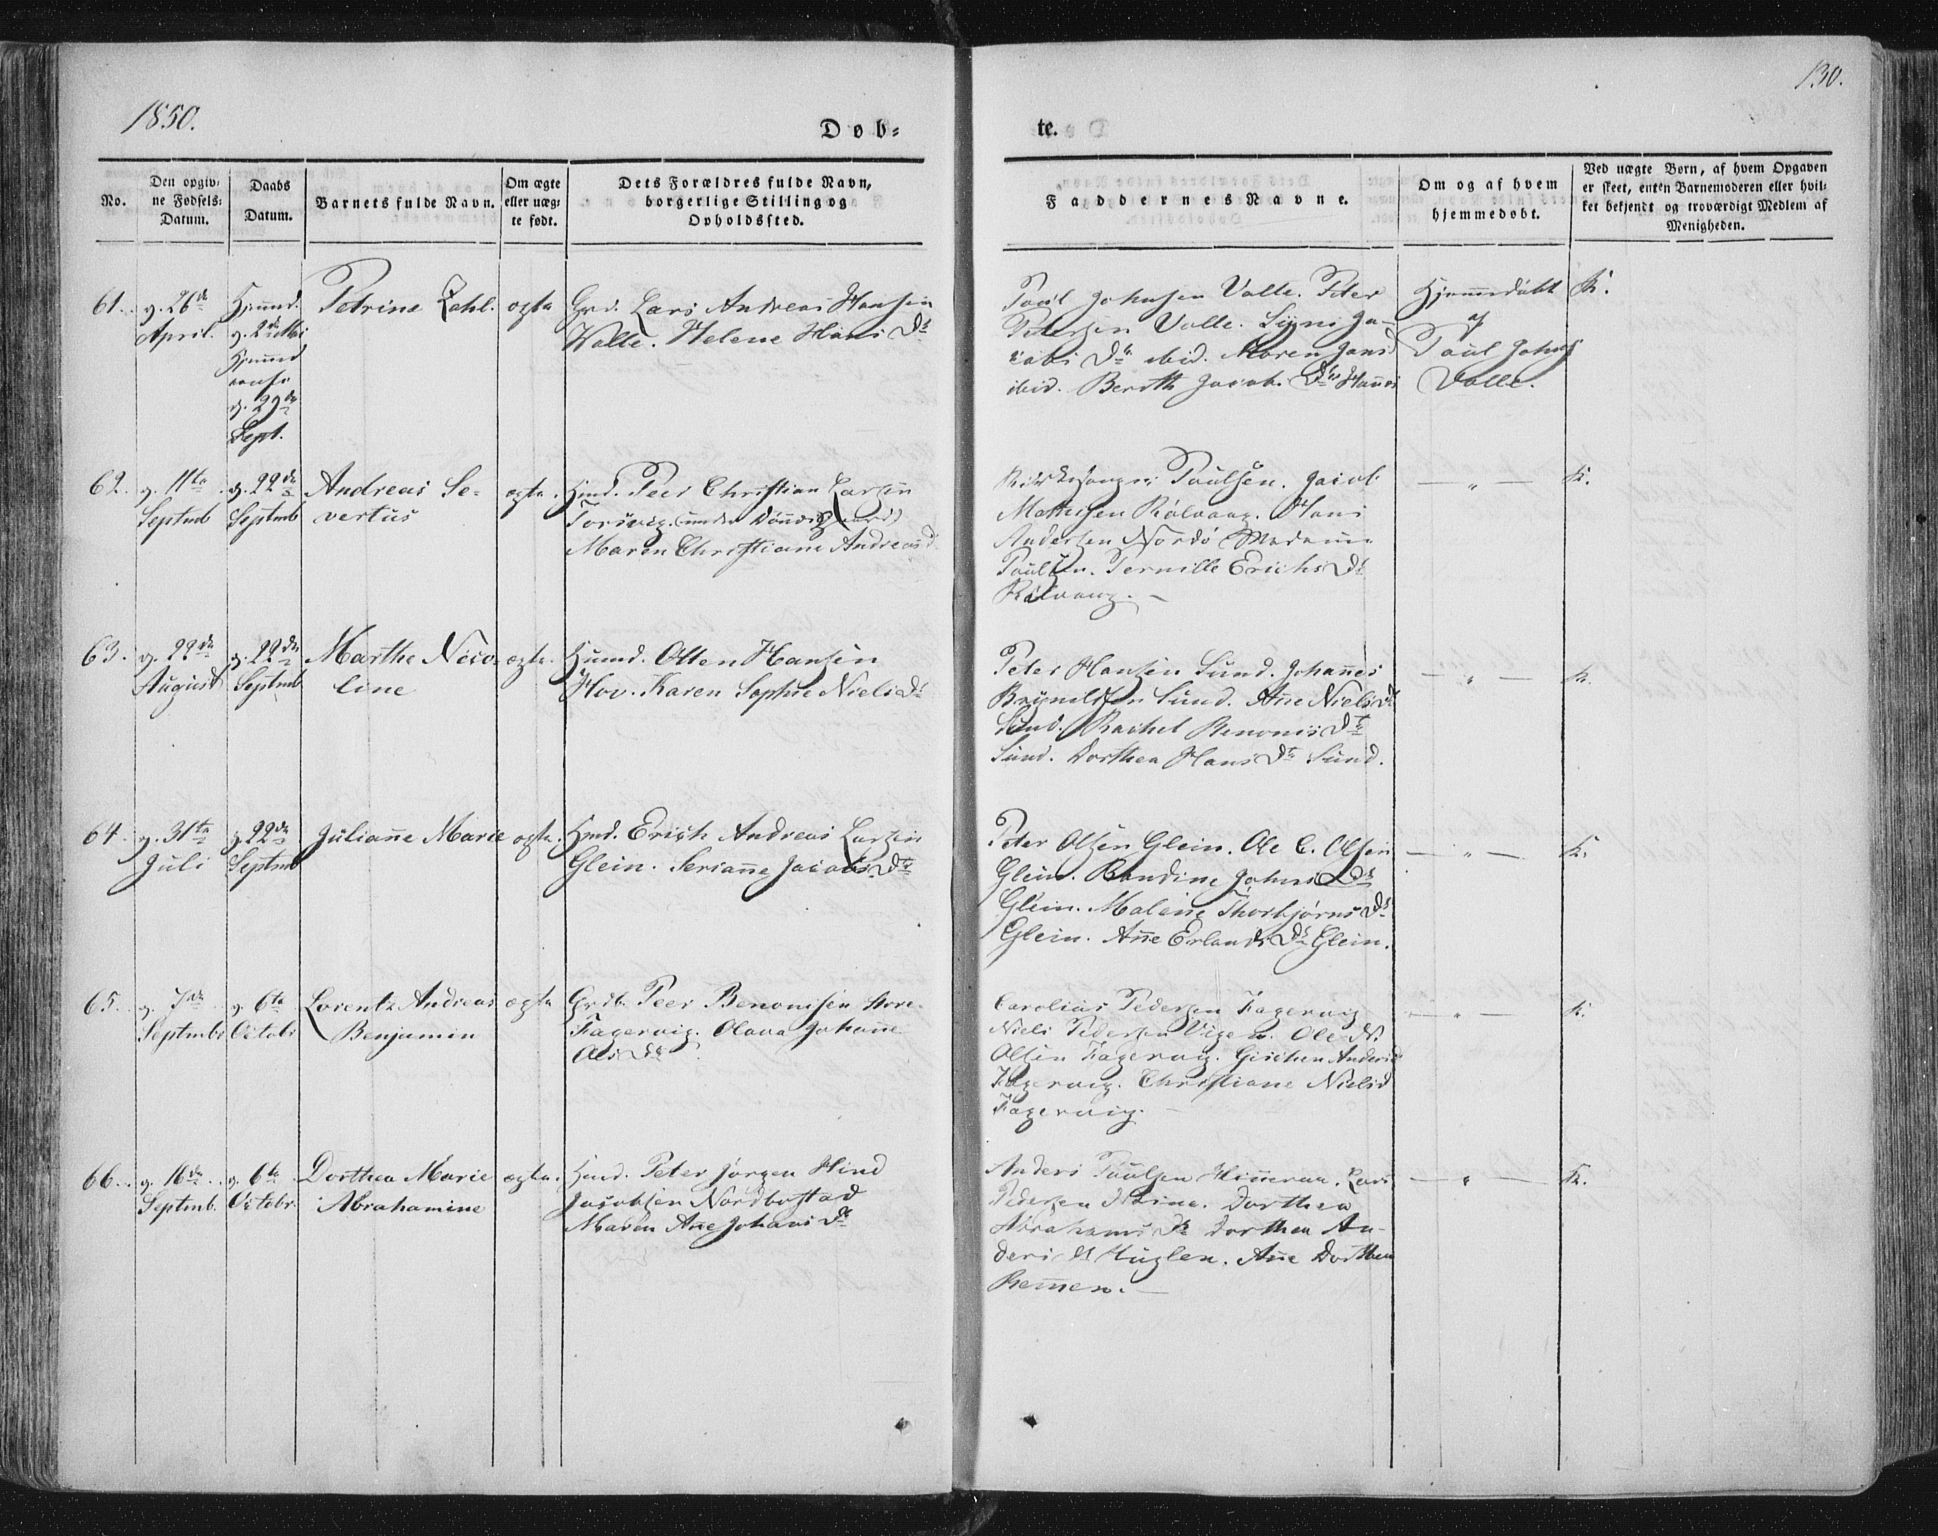 1850.
130.
Døb-
te.
No.
Den opgiv-
ne Fødsels-
Datum.
Daabs
Datum.
Barnets fulde Navn.
Om ægte
eller uæg-
te født.
Dets Forældres fulde Navn,
borgerlige Stilling og
Opholdssted.
Faddernes Navne.
Om og af hvem
hjemmedøbt.
Ved uægte Børn, af hvem Opgaven
er skeet, enten Barnemoderen eller hvil-
ket bekjendt og troværdigt Medlem af
Menigheden.
61.
d. 26de
April.
Hjemd.
d. 2de Mai
d. 29de
Sept.
Petrine Zahl.
ægte
Grd. Lars Andreas Hansen
Valle. Helene Hans Dt
Paul Johnsen Valle. Peter
Petersen Valle. Ja-
cobs Dt. ibid. Maren Jans d
ibid. Berith Jacobs Dtr
Hjemmedøbt
af
Paul Johns
Valle.
K.
62.
d. 11te
Septmb
d. 22de
Septmb
Andreas Se-
vertus
ægte.
Hmd. Peer Christian Larsen
Torsvig. (under Dønnæs Gaard)
Maren Christiane Andreas d.
Paulsen. Jacob
Mathisen Rølvaag. Hans
Andersen Nordø Madame
Paulsen. Pernille Erichs Dt
Rølvaag. —
— " —
K.
63.
d. 22de
August
d. 22de
Septmb
Marthe Nico-
line
ægte.
Huusmd. Olten Hansen
Hov. Karen Sophie Niels Dt
Peter Hansen Sund. Johannes
Sund. Ane Niels Dt
Sund. Rachel Benonis Dt
Sund. Dorthea Hans Dt Sund.
— " —
K.
64.
d. 31te
Juli
d. 22de
Septmb
Juliane Marie
ægte.
Hmd. Erich Andreas Larsen
Glein. Seriane Jacobs. Dt
Peter Olsen Glein. Ole C. Olsen
Glein. Bendine Johns Dt
Glein. Malene Thorbjørns Dt
Glein. Ane Erlands Dt Glein.
— " —
K.
65.
d. 7de
Septmb
d. 6te
Octobr
Lorentz Andreas
Benjamin
ægte
Grdb. Peer Benonisen Store
Fagervig. Olava Johane
Ols Dt
Carolius Pedersen Fagervig
Niels Pedersen Ole N.
Olsen Fagervig. Anders d
Fagervig. Christiane Niels d
Fagervig. —
— " —
K.
66.
d. 16de
Septmb.
d. 6te
Octobr.
Dorthea Marie
Abrahamine
ægte.
Hmd. Peter Jørgen Hind
Jacobsen Nordbostad
Maren Ane Johans Dt
Anders Paulsen Lars
Pedersen Dorthea
Abrahams Dt Dorthea An-
ders Dt Huglen. Ane Dorthea
Remen. —
— " —
K.